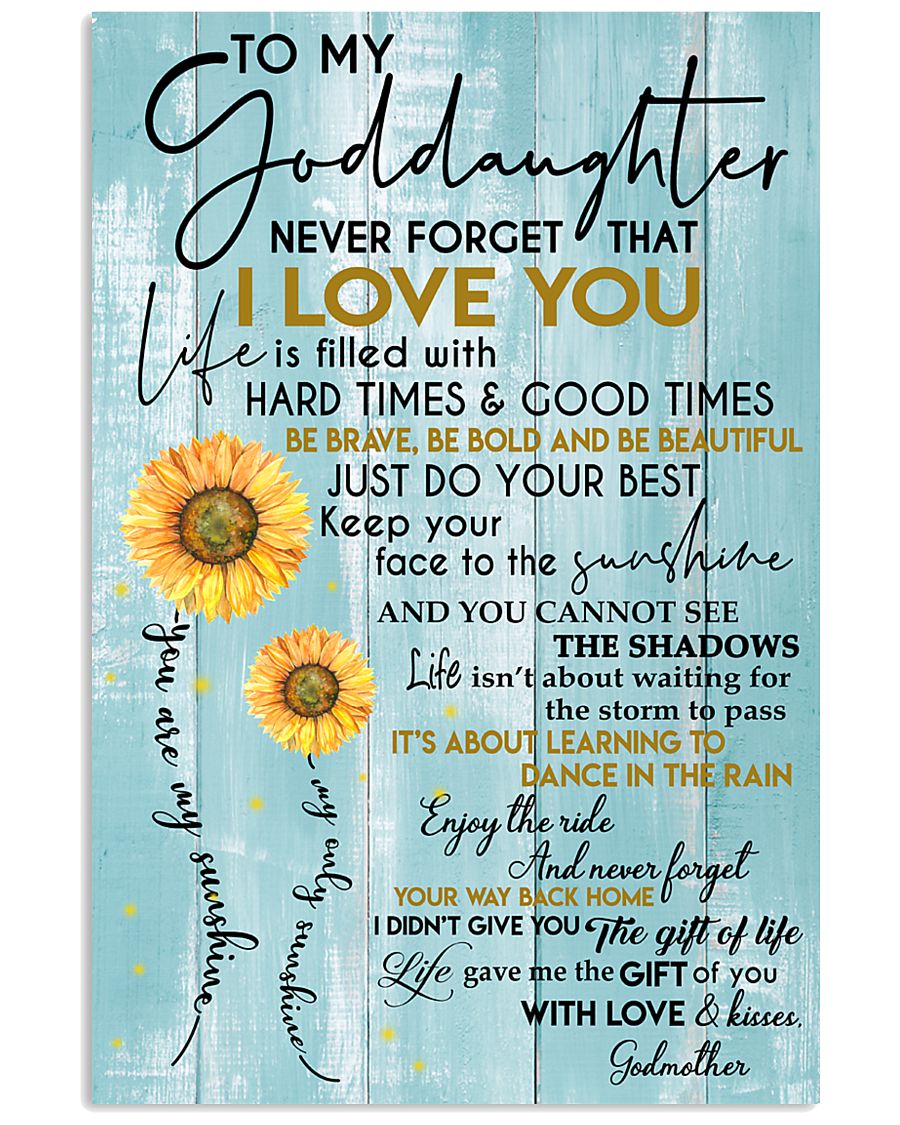 TO MY
Goddaughter
NEVER FORGET THAT
I LOVE YOU
Life is filled with
HARD TIMES & GOOD TIMES
BE BRAVE, BE BOLD AND BE BEAUTIFUL
JUST DO YOUR BEST
Keep your
face to the sunshine
AND YOU CANNOT SEE
THE SHADOWS
Life isn't about waiting for
the storm to pass
IT'S ABOUT LEARNING TO
DANCE IN THE RAIN
Enjoy the ride
And never forget
YOUR WAY BACK HOME
I DIDN'T GIVE YOU The gift of life
Life gave me the GIFT of you
WITH LOVE & kisses,
Godmother
you are my sunshine
my only sunshine